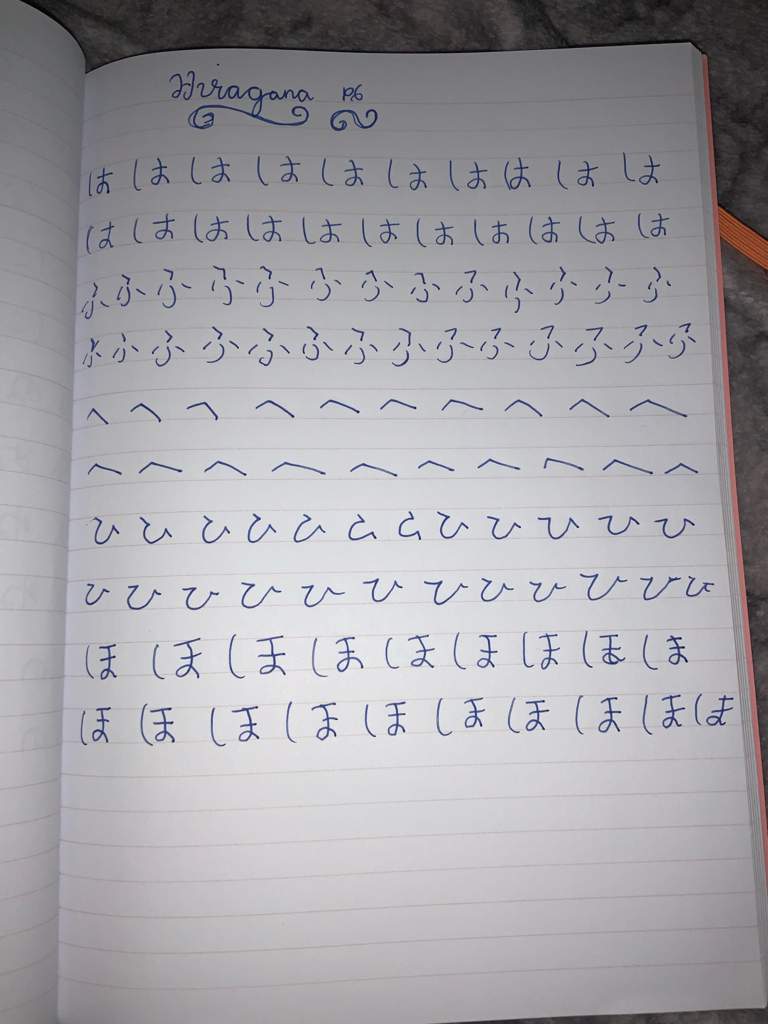 Hiragana p.6
はははははははははは
ははははははははははは
ふふふふふふふふふふふふふ
ふふふふふふふふふふふふふふ
へへへへへへへへへへ
へへへへへへへへへへ
ひひひひひひひひひひひひ
ひひひひひひひひひひひひ
ほほほほほほほほほ
ほほほほほほほほほほ